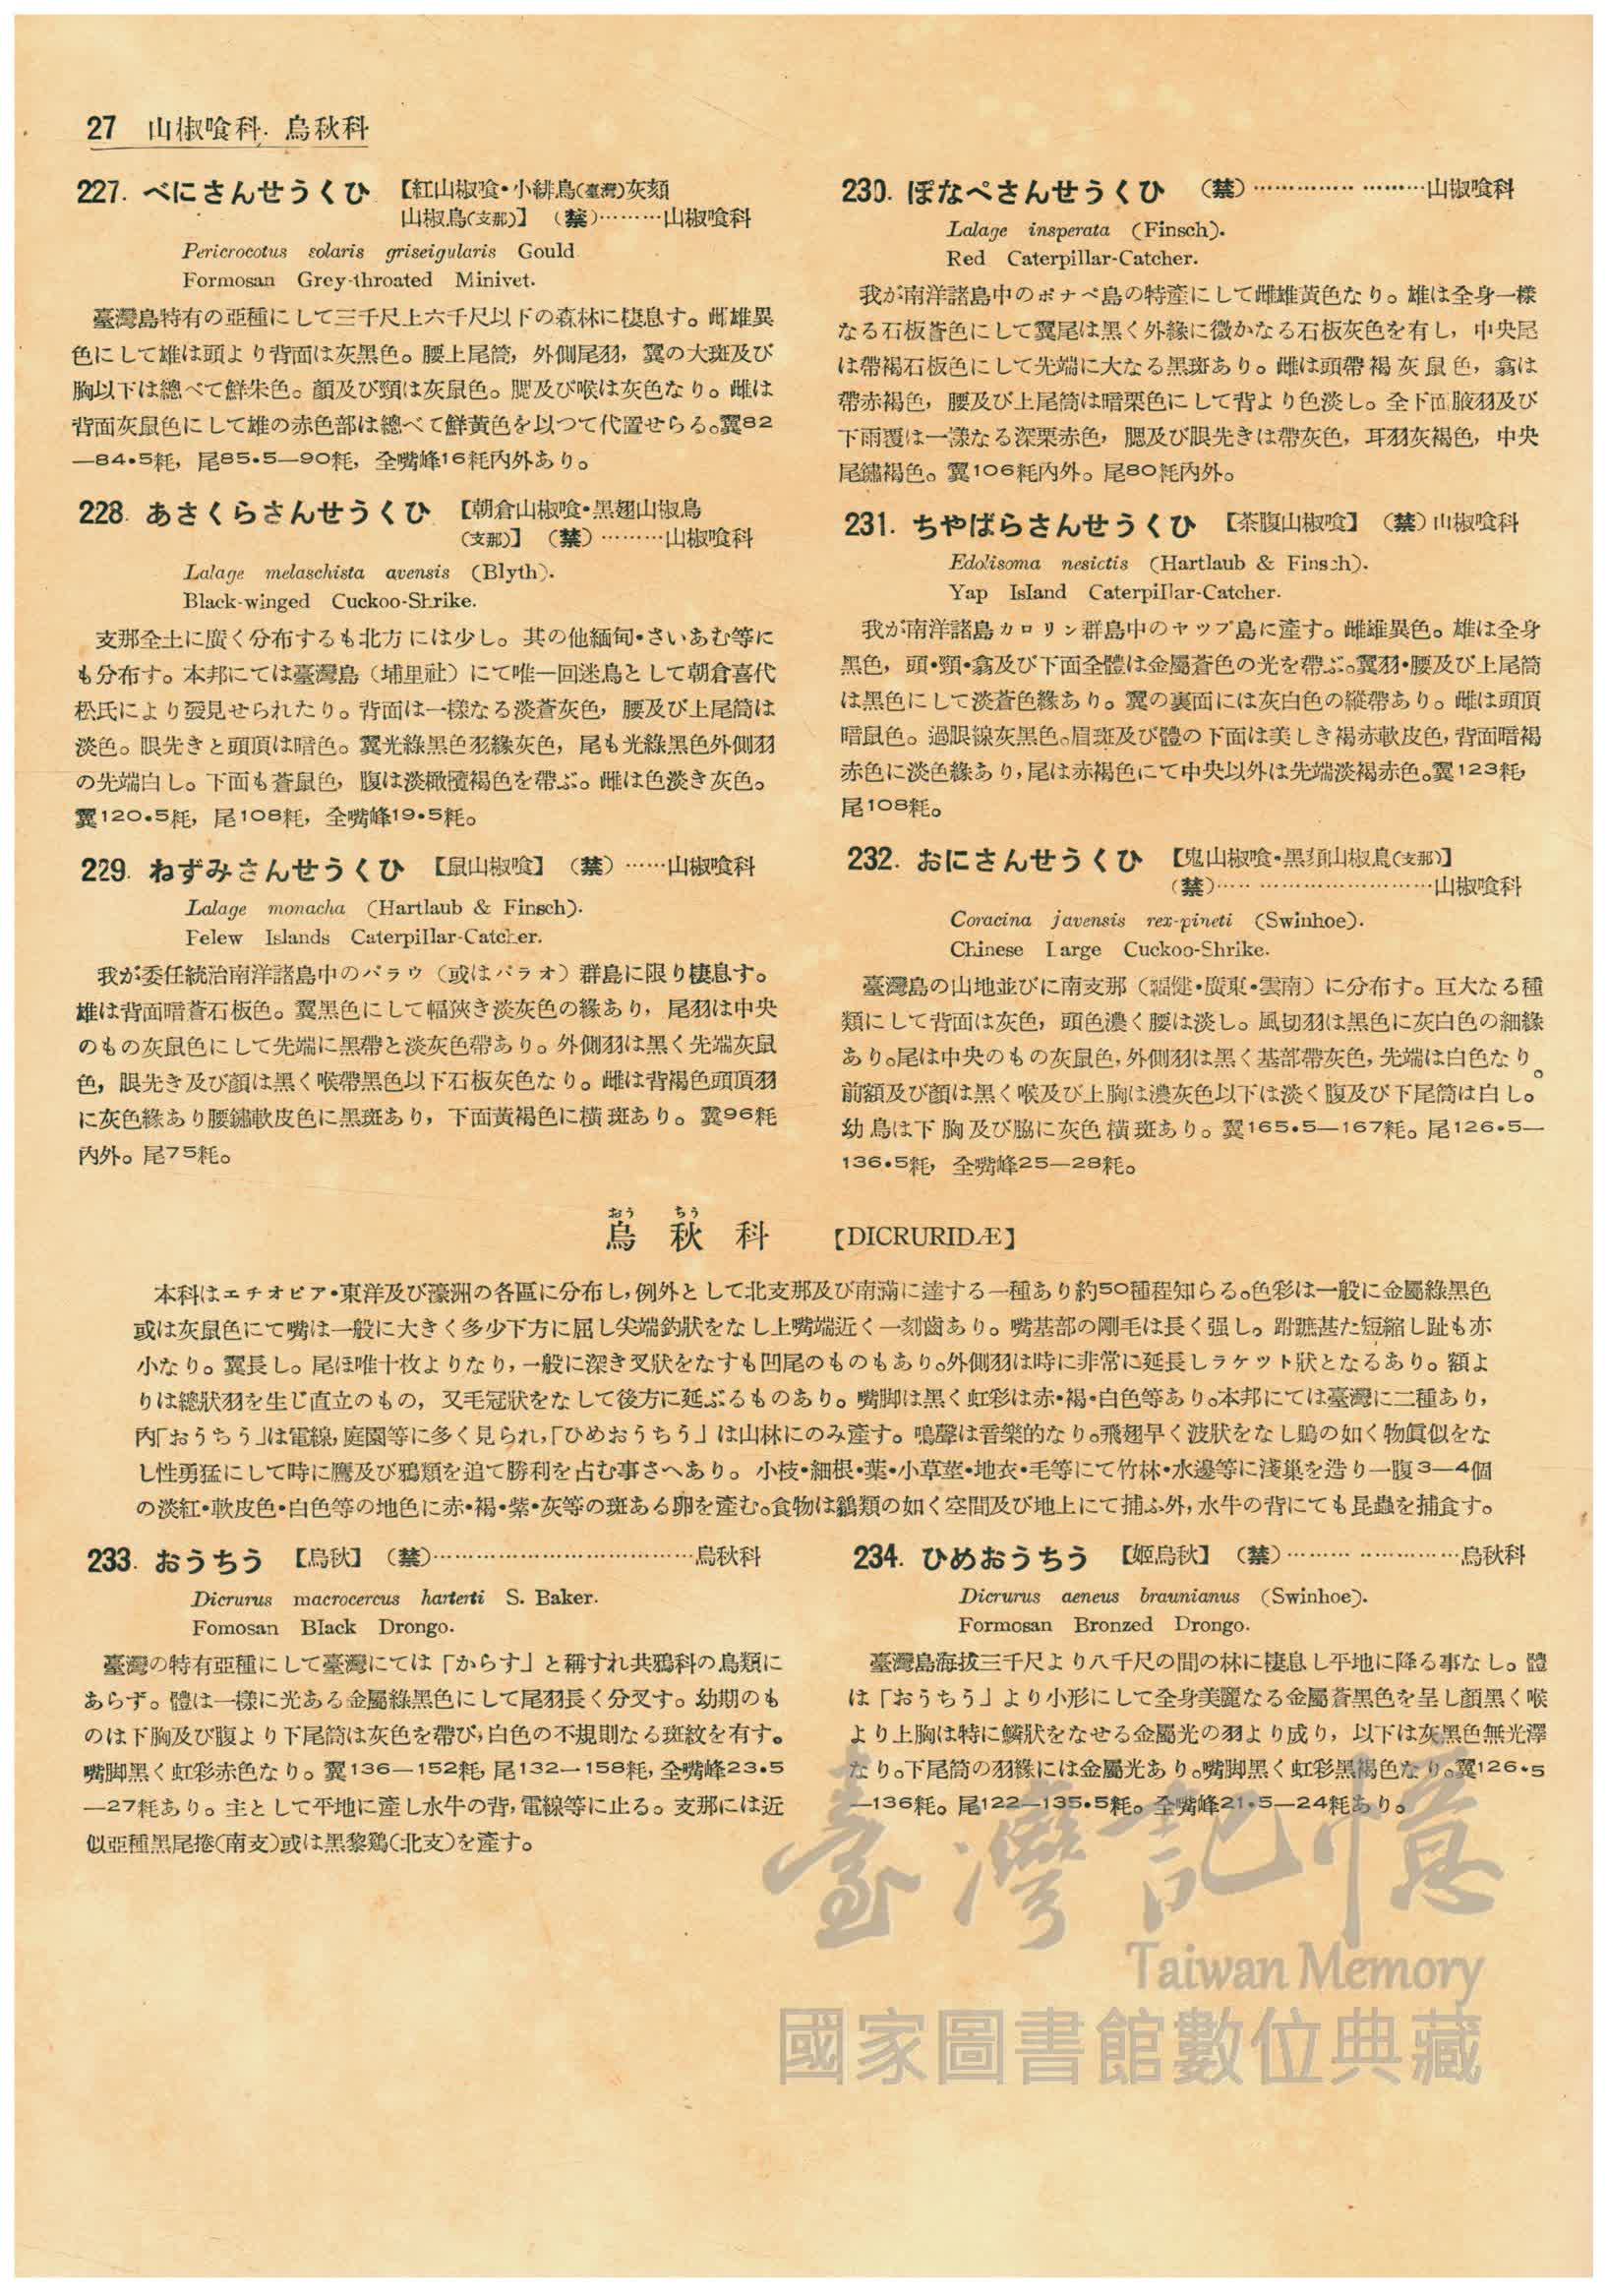 27 山椒喰科. 烏秋科
227. べにさんせうくひ 【紅山椒喰・小緋鳥(臺灣)灰頬
山椒鳥(支那)】 (禁)………山椒喰科
Pericrocotus solaris griseigularis Gould
Formosan Grey-throated Minivet.
臺灣島特有の亞種にして三千尺上六千尺以下の森林に棲息す。雌雄異
色にして雄は頭より背面は灰黑色。腰上尾筒, 外側尾羽, 翼の大斑及び
胸以下は總べて鮮朱色。顏及び頸は灰鼠色。腮及び喉は灰色なり。雌は
背面灰鼠色にして雄の赤色部は總べて鮮黃色を以つて代置せらる。翼82
—84.5粍, 尾85.5—90粍, 全嘴峰16粍內外あり。
228. あさくらさんせうくひ 【朝倉山椒喰・黑翅山椒鳥
(支那)】 (禁) ………山椒喰科
Lalage melaschista avensis (Blyth).
Black-winged Cuckoo-Shrike.
支那全土に廣く分布するも北方には少し。其の他緬甸・さいあむ等に
も分布す。本邦にては臺灣島(埔里社)にて唯一回迷鳥として朝倉喜代
松氏により發見せられたり。背面は一樣なる淡蒼灰色, 腰及び上尾筒は
淡色。眼先きと頭頂は暗色。翼光綠黑色羽緣灰色, 尾も光綠黑色外側羽
の先端白し。下面も蒼鼠色, 腹は淡橄欖褐色を帶ぶ。雌は色淡き灰色。
翼120.5粍, 尾108粍, 全嘴峰19.5粍。
229. ねずみさんせうくひ 【鼠山椒喰】 (禁) ……山椒喰科
Lalage monacha (Hartlaub & Finsch).
Pelew Islands Caterpillar-Catcher.
我が委任統治南洋諸島中のパラウ(或はパラオ)群島に限り棲息す。
雄は背面暗蒼石板色。翼黑色にして幅狹き淡灰色の緣あり, 尾羽は中央
のもの灰鼠色にして先端に黑帶と淡灰色帶あり。外側羽は黑く先端灰鼠
色, 眼先き及び顏は黑く喉帶黑色以下石板灰色なり。雌は背褐色頭頂羽
に灰色緣あり腰鏽軟皮色に黑斑あり, 下面黃褐色に橫斑あり。翼96粍
內外。尾75粍。
230. ぽなぺさんせうくひ (禁) …………… ………山椒喰科
Lalage insperata (Finsch).
Red Caterpillar-Catcher.
我が南洋諸島中のポナペ島の特產にして雌雄黃色なり。雄は全身一樣
なる石板蒼色にして翼尾は黑く外緣に微かなる石板灰色を有し, 中央尾
は帶褐石板色にして先端に大なる黑斑あり。雌は頭帶褐灰鼠色, 翕は
帶赤褐色, 腰及び上尾筒は暗栗色にして背より色淡し。全下面腋羽及び
下雨覆は一樣なる深栗赤色, 腮及び眼先きは帶灰色, 耳羽灰褐色, 中央
尾鏽褐色。翼106粍內外。尾80粍內外。
231. ちやばらさんせうくひ 【茶腹山椒喰】 (禁) 山椒喰科
Edolisoma nesictis (Hartlaub & Finsch).
Yap Island Caterpillar-Catcher.
我が南洋諸島カロリン群島中のヤップ島に產す。雌雄異色。雄は全身
黑色, 頭・頸・翕及び下面全體は金屬蒼色の光を帶ぶ。翼羽・腰及び上尾筒
は黑色にして淡蒼色緣あり。翼の裏面には灰白色の縱帶あり。雌は頭頂
暗鼠色。過眼線灰黑色。眉斑及び體の下面は美しき褐赤軟皮色, 背面暗褐
赤色に淡色緣あり, 尾は赤褐色にて中央以外は先端淡褐赤色。翼123粍,
尾108粍。
232. おにさんせうくひ 【鬼山椒喰・黑須山椒鳥(支那)】
(禁)…… ……………………山椒喰科
Coracina javensis rex-pineti (Swinhoe).
Chinese Large Cuckoo-Shrike.
臺灣島の山地並びに南支那(福健・廣東・雲南)に分布す。巨大なる種
類にして背面は灰色, 頭色濃く腰は淡し。風切羽は黑色に灰白色の細緣
あり。尾は中央のもの灰鼠色, 外側羽は黑く基部帶灰色, 先端は白色なり。
前額及び顏は黑く喉及び上胸は濃灰色以下は淡く腹及び下尾筒は白し。
幼鳥は下胸及び脇に灰色橫斑あり。翼165.5—167粍。尾126.5—
136.5粍, 全嘴峰25—28粍。
おう ちう
烏秋科 【DICRURIDÆ】
本科はエチオピア・東洋及び濠洲の各區に分布し, 例外として北支那及び南滿に達する一種あり約50種程知らる。色彩は一般に金屬綠黑色
或は灰鼠色にて嘴は一般に大きく多少下方に屈し尖端鈎狀をなし上嘴端近く一刻齒あり。嘴基部の剛毛は長く强し。跗蹠甚た短縮し趾も亦
小なり。翼長し。尾ほ唯十枚よりなり, 一般に深き叉狀をなすも凹尾のものもあり。外側羽は時に非常に延長しラケット狀となるあり。額よ
りは總狀羽を生じ直立のもの, 又毛冠狀をなして後方に延ぶるものあり。嘴脚は黑く虹彩は赤・褐・白色等あり。本邦にては臺灣に二種あり,
內「おうちう」は電線, 庭園等に多く見られ,「ひめおうちう」は山林にのみ產す。鳴聲は音樂的なり。飛翅早く波狀をなし鵙の如く物眞似をな
し性勇猛にして時に鷹及び鴉類を追て勝利を占む事さへあり。小枝・細根・葉・小草莖・地衣・毛等にて竹林・水邊等に淺巢を造り一腹3—4個
の淡紅・軟皮色・白色等の地色に赤・褐・紫・灰等の斑ある卵を產む。食物は鶲類の如く空間及び地上にて捕ふ外, 水牛の背にても昆蟲を捕食す。
233. おうちう 【烏秋】 (禁)………………………………烏秋科
Dicrurus macrocercus harterti S. Baker.
Fomosan Black Drongo.
臺灣の特有亞種にして臺灣にては「からす」と稱すれ共鴉科の鳥類に
あらず。體は一樣に光ある金屬綠黑色にして尾羽長く分叉す。幼期のも
のは下胸及び腹より下尾筒は灰色を帶び, 白色の不規則なる斑紋を有す。
嘴脚黑く虹彩赤色なり。翼136—152粍, 尾132—158粍, 全嘴峰23.5
—27粍あり。主として平地に產し水牛の背, 電線等に止る。支那には近
似亞種黑尾捲(南支)或は黑黎鷄(北支)を產す。
234. ひめおうちう 【姬烏秋】 (禁)……… ……………烏秋科
Dicrurus aeneus braunianus (Swinhoe).
Formosan Bronzed Drongo.
臺灣島海拔三千尺より八千尺の間の林に棲息し平地に降る事なし。體
は「おうちう」より小形にして全身美麗なる金屬蒼黑色を呈し顏黑く喉
より上胸は特に鱗狀をなせる金屬光の羽より成り, 以下は灰黑色無光澤
なり。下尾筒の羽緣には金屬光あり。嘴脚黑く虹彩黑褐色なり。翼126.5
—136粍。尾122—135.5粍。全嘴峰21.5—24粍あり。
臺灣記憶
Taiwan Memory
國家圖書館數位典藏